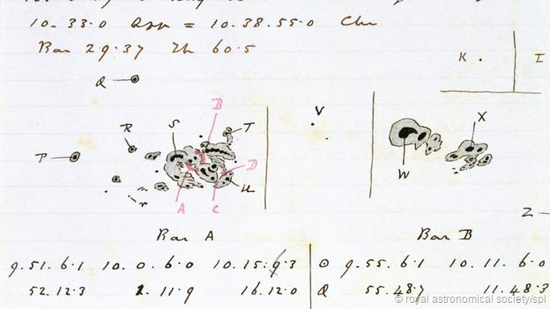 10. 33.0 App = 10. 38. 55.0 Clu
Bar 29.37 Th 60.5
K
I
Q
B
V
X
R
S
T
P
D
W
A
C
U
r
2
Bar A
Bar B
9. 51. 6.1 10. 0. 6.0 10. 15. 9.3
52. 12.3 2. 11.9 16. 12.0
⊙ 9. 55. 6.1 10. 11. 6.0
Q 55. 48.7 11. 48.3
© royal astronomical society/spl